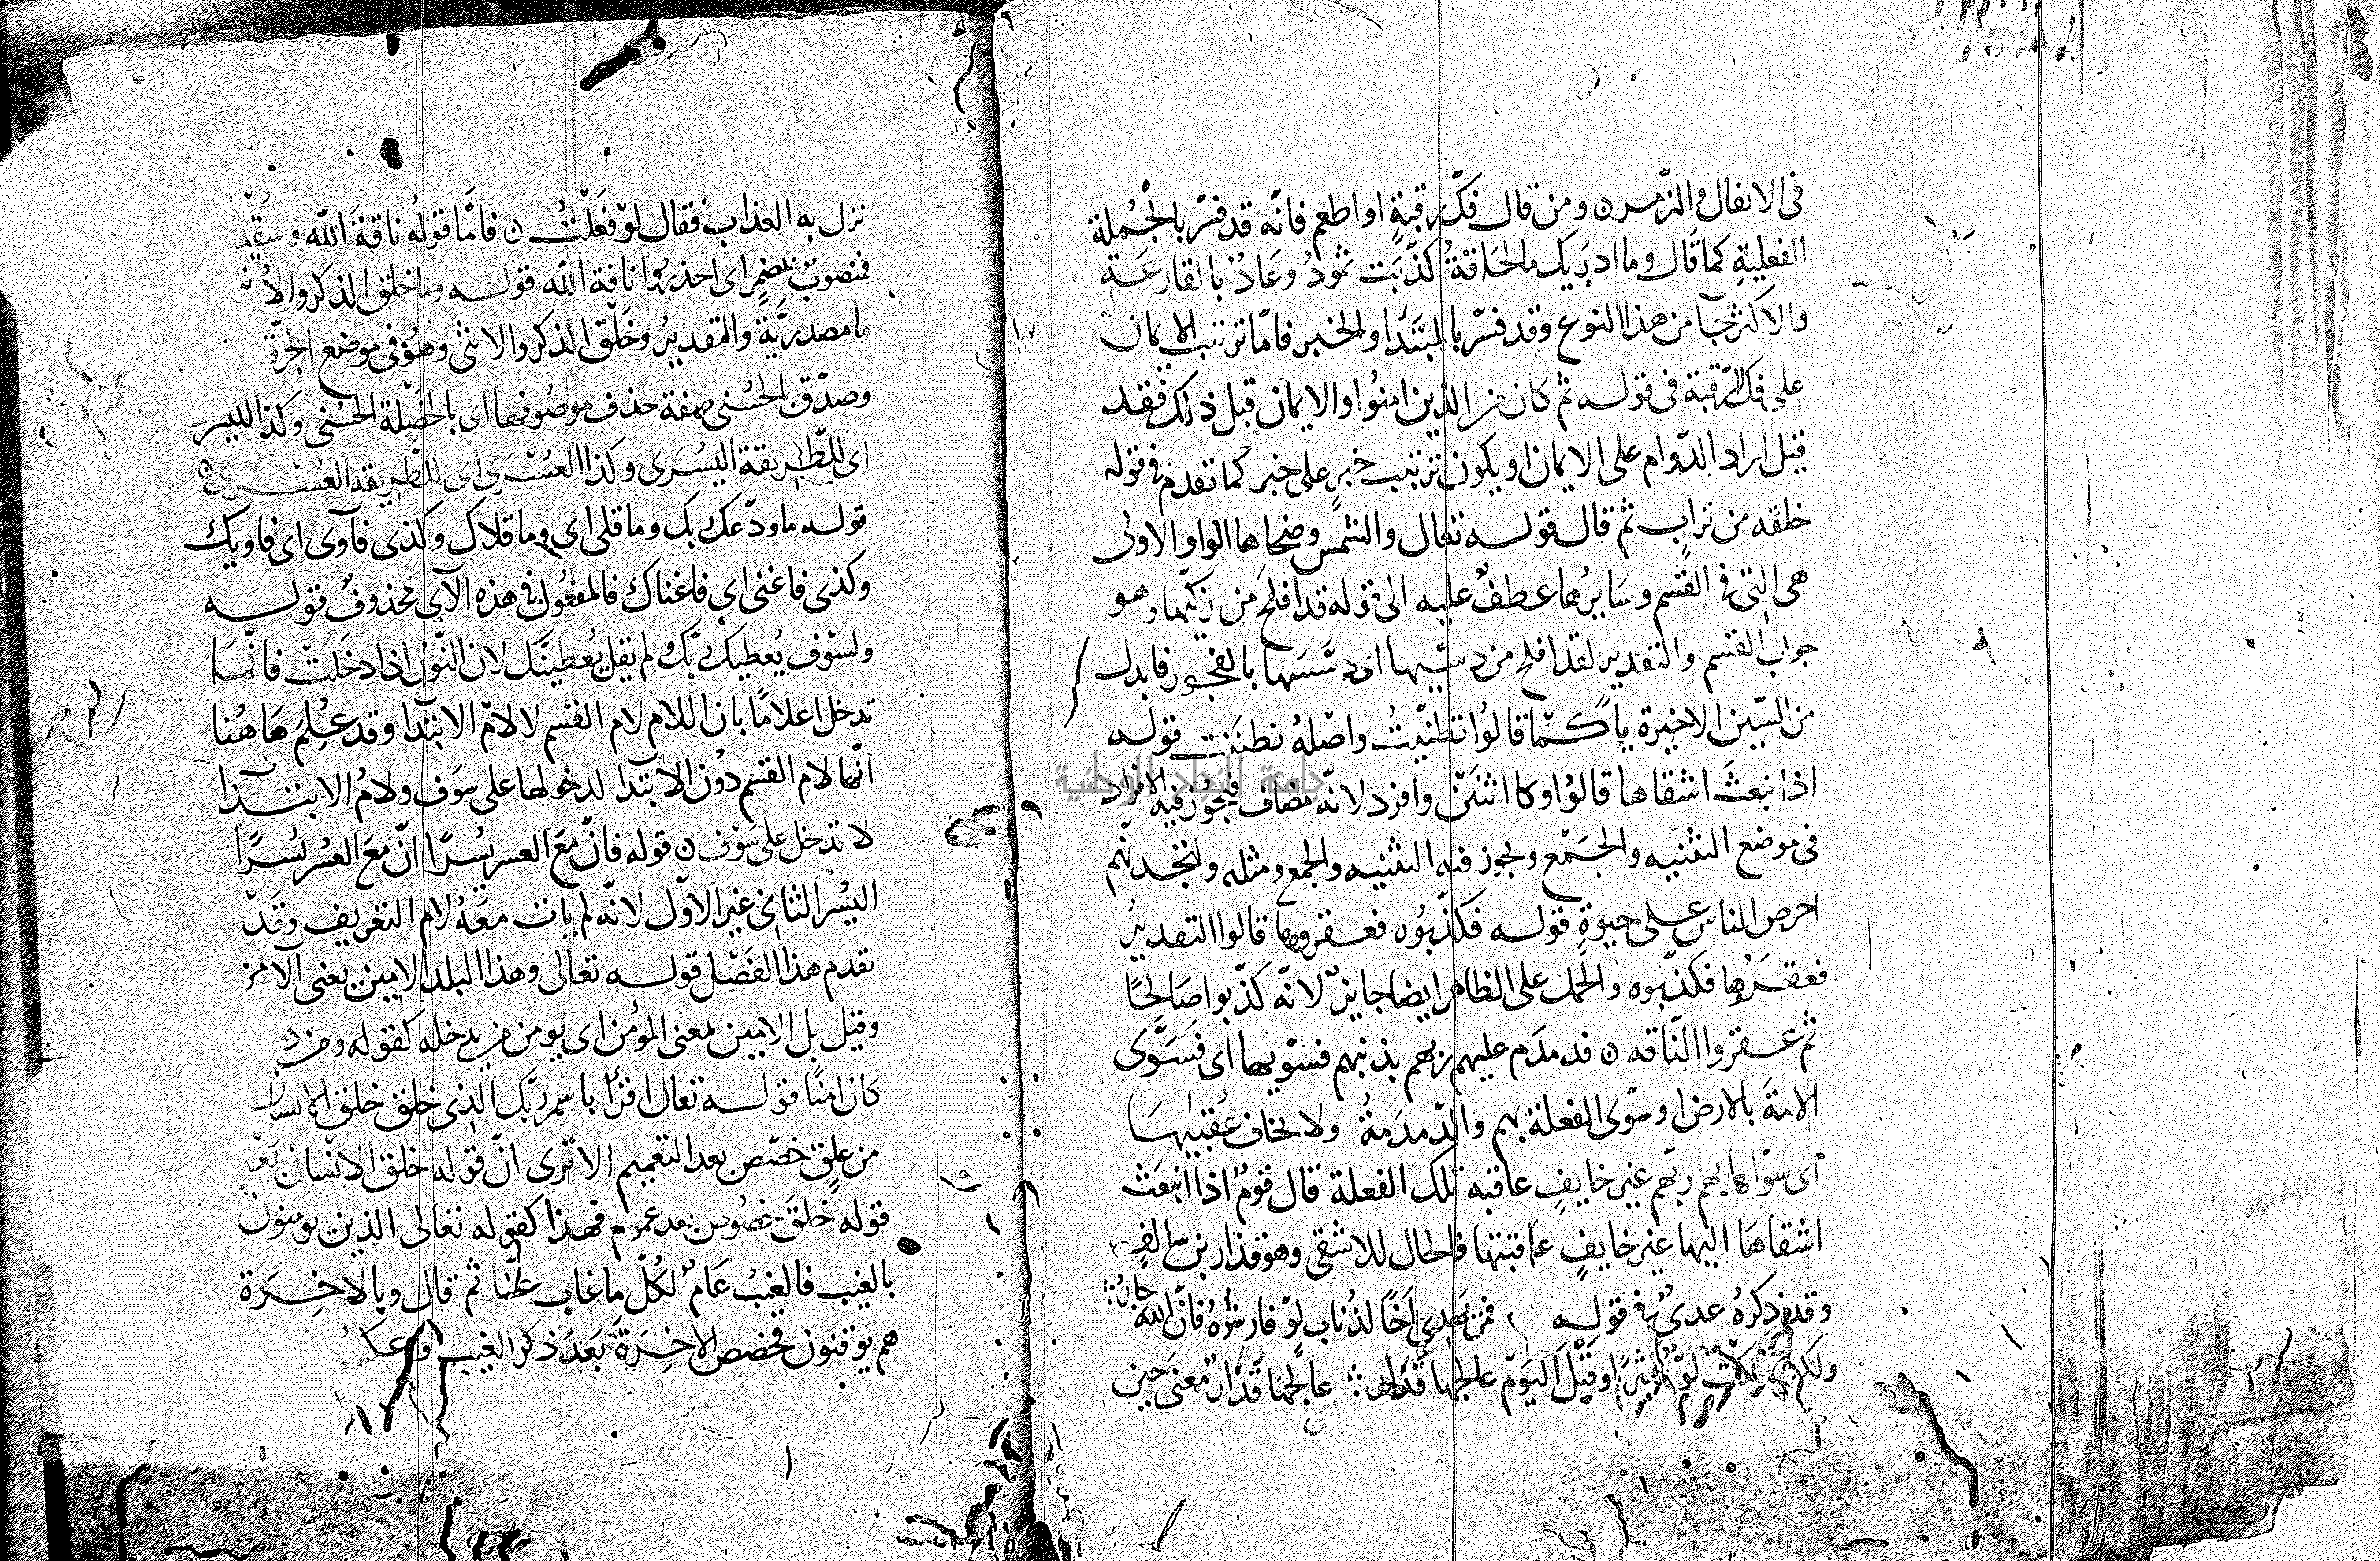 فى الانفال والزمر ن ومن قال فكّ رقبةٍ او اطعم فانّه قد فسّر بالجُملة
الفعليةِ كما قَال وما ادريك مالحَاقةُ كذّبَت ثمودُ وعَادٌ بالقارعَةِ
والاكثر جآ من هذا النوع وقد فسّر بالمبتَدَا والخبر فامّا ترتيب الايمان
على فك الرّقبة فى قوله ثم كان من الذين امنُوا والايمان قبل ذلك فقد
قيل اراد الدّوام على الايمان او يكون ترتيب خبرٍ على خبر كما تقدم فى قوله
خلقه من ترابٍ ثم قال قوله تعالى والشمس وضحاها الواو الاولى
هى التى فى القَسم وسَايرُها عطفٌ عليه الى قوله قد افلح من زكّيها وهو
جواب القسم والتقدير لقد افلح من دسّيها اى دسّسَها بالفجور فابدل
من السّين الاخيرة يآً كمّا قالُوا تظنّيتُ واصْلهُ تظنَنت قوله
اذ انبعثَ اشقاها قالوُا وكانا اثنَيْن وافرد لانّه مضاف فيجُوز فيه الافراد
فى موضع التثنيه والجَمْع ويجوز فيه التثنيه والجمع ومثله ولتجدنّهم
احرص الناس على حيوةٍ قوله فكذّبُوه فعقروها قالوا التقديرُ
فعقرُوها فكذّبوه والحَمل على الظاهر ايضا جايزٌ لانّه كذّبوا صَالحًا
ثم عقروا النّاقه ن فدمدَم عليهم ربهم بذنبهم فسوّيها اى فسَوَّى
الامةَ بالارض او سوّى الفعلة بهم والدّمدَمةُ ولا يخاف عُقبيهَا
اى سوّاها بهم ربّهم غير خايفٍ عاقبه تلك الفعلة قال قومٌ اذ انبعَث
اشقاهَا اليها غير خايفٍ عاقبتها فالحال للاشقى وهو قدار بن سالفٍ
وقد ذكرهُ عدىٌ فى قوله فمن اَخًا لدُناب لوّ فان اللّه جارُ
اليَوْم عالجها قدار عالجنا قدارٌ معنى حين
نزل به العذاب فقال لوْ فعَلتُ ن فامَّا قولُه ناقةَ اللّه وسُقيٰـ
فمنصوبٌ بمضمرٍ اى احذرُوا ناقة اللّه قوله وما خلق الذكر والأنثى
ما مصدريَّةٌ والتقديرُ وخَلْق الذكر والانثى وهُو فى موضع الجرّ
وصدّق بالحُسْنى صفة حذف موصُوفها اى بالخَصْلة الحُسْنى وكذا لليسرى
اى للطّريقة اليسُرَى وكذا العسْرَى اى للطّريقه العُسْرَى ن
قوله ما ودّعك ربك وما قلى اى وما قلاك وكذى فآوى اى فاويك
وكذى فاغنى اى فاغناك فالمفعُول فى هذه الآى محذوفٌ قوله
ولسَوْف يُعطيك ربّك لم يقل يُعطينَّك لان النّون اذا دخَلَتْ فانّمَا
تدخل اعلامًا بان اللام لام القسم لا لامّ الابتدا وقد عُلِمَ هَاهُنا
انّها لام القسم دوُن الابتدا لدخولها على سَوَف ولامُ الابتدا
لا تدخل على سَوْف ن قوله فانّ مَعَ العسر يسُرًا انّ معَ العسُر يسُرًا
اليسُر الثانى غير الاوّل لانّه لم يات معَهُ لام التعريف وقَدْ
تقدم هذا الفَصْل قوله تعالى وهذا البلد الامين يعنى الآمن
وقيل بل الامين بمعنى المؤمن اى يومن من يدخله كقوله ومن د
كان امنًا قوله تعالى اقرا باسم ربّك الذى خلق خلق الانسان
من علقٍ خصّص بعد التعميم الا ترى انّ قوله خلق الانسان بَعْد
قوله خلَق خصُوص بعد عموم فهذا كقوله تعَالى الذين يومنون
بالغيب فالغيبُ عَامٌ لكُلّ ما غاب عنّا ثم قال وبالاخِرَة
هم يوقنون فخصص الاخِرَةَ بَعَد ذكر الغيب